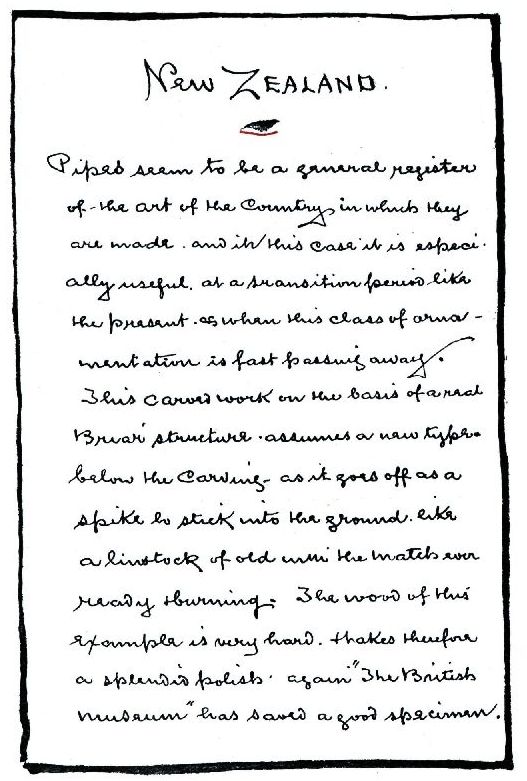 New Zealand.
Pipes seem to be a general register
of the art of the Country, in which they
are made. and in this case it is especi-
ally useful. at a transition period like
the present. as when this class of orna-
mentation is fast passing away.
This carved work on the basis of a real
Briar structure. assumes a new type.
below the Carving- as it goes off as a
spike to stick into the ground. like
a linstock of old with the match ever
ready & burning. The wood of this
example is very hard. & takes therefore
a splendid polish. again "The British
Museum" has saved a good specimen.